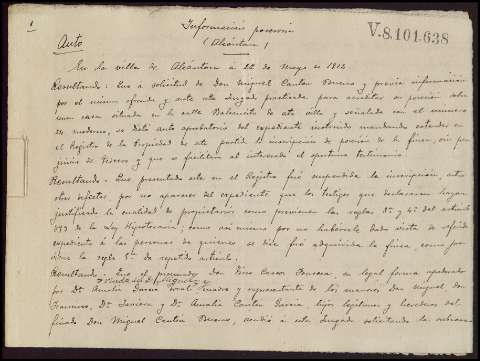 1
Información posesoria
(Alcántara)
V-8.101.638
Auto
En la villa de Alcántara á 22 de Mayo de 1902
Resultando: Que á solicitud de Don Miguel Cantón Bueno y previa información
por el mismo ofrecida y ante este Juzgado practicada para acreditar su posesión sobre
una casa situada en la calle de esta villa y señalada con el número
moderno, se dictó auto aprobatorio del expediente instruido mandando extender en
el Registro de la Propiedad de este partido la inscripción de posesión de la finca, sin per-
juicio de tercero y que se facilitara al interesado el oportuno testimonio.
Resultando: Que presentado este en el Registro fué suspendida la inscripción, entre
otros defectos, por no aparecer del expediente que los testigos que declararon hayan
justificado la cualidad de propietarios como previenen las reglas 3ª y 4ª del artículo
de la Ley Hipotecaria, como así mismo por no habérsele dado vista de referido
expediente á las personas de quienes se dice fué adquirida la finca, como pre-
viene la regla 5ª de repetido artículo.
Resultando: Que el procurador Don en legal forma apoderado
viuda de D. Miguel y
por Dª Amalia García madre y representante de los menores Don Miguel, Don
Francisco, Dª Javiera y Dª Amalia Cantón García, hijos legítimos y herederos del
finado Don Miguel Cantón Bueno, acudió á este Juzgado solicitando la subsana-